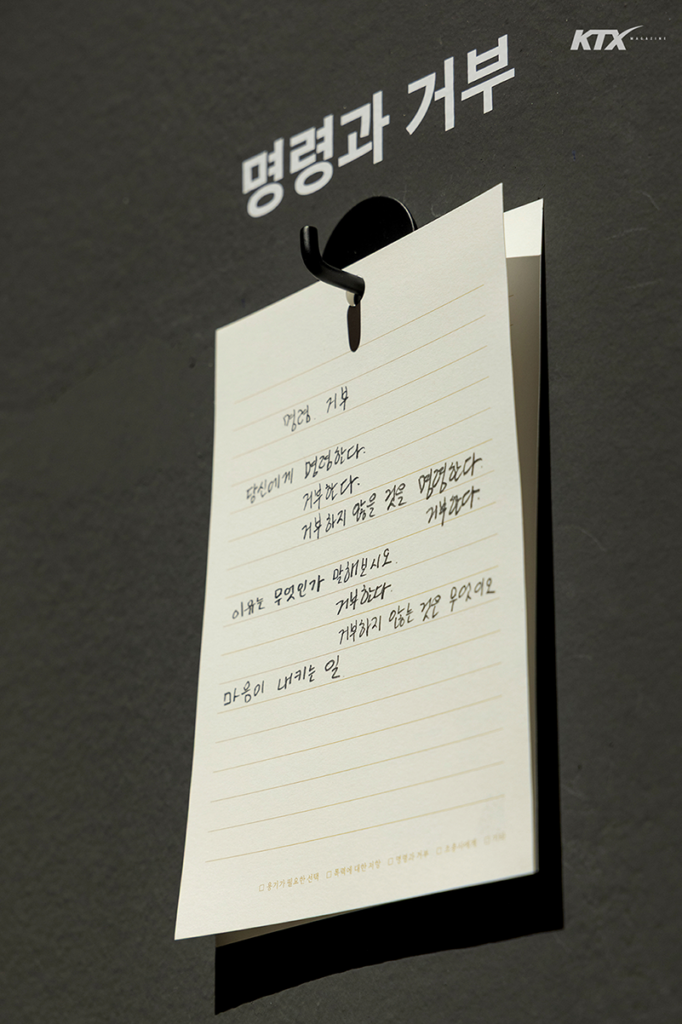 KTX MAGAZINE
명령과 거부
명령. 거부
당신에게 명령한다.
거부한다.
거부하지 않을 것을 명령한다.
거부한다.
이유는 무엇인가 말해보시오.
거부한다.
거부하지 않는 것은 무엇이오
마음이 내키는 일
□ 용기가 필요한 선택 □ 폭력에 대한 저항 □ 명령과 거부